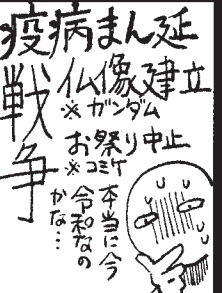 疫病まん延
戦争
仏像建立
※ガンダム
お祭り中止
※コミケ
本当に今
令和なの
かな…